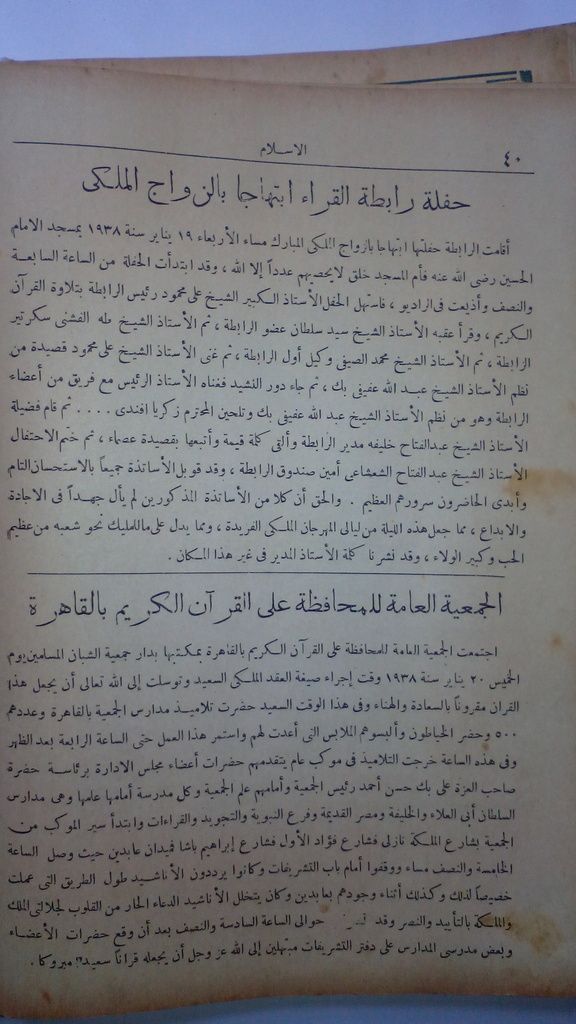 ٤٠
الاسلام
حفلة رابطة القراء ابتهاجا بالزواج الملكى
أقامت الرابطة حفلتها ابتهاجا بالزواج الملكى المبارك مساء الأربعاء ١٩ يناير سنة ١٩٣٨ بمسجد الامام
الحسين رضى الله عنه فأم المسجد خلق لا يحصيهم عدداً إلا الله ، وقد ابتدأت الحفلة من الساعة السابعة
والنصف وأذيعت فى الراديو ، فاستهل الحفل الأستاذ الكبير الشيخ على محمود رئيس الرابطة بتلاوة القرآن
الكريم ، وقرأ عقبه الأستاذ الشيخ سيد سلطان عضو الرابطة ، ثم الأستاذ الشيخ طه الفشنى سكرتير
الرابطة ، ثم الأستاذ الشيخ محمد الصيفى وكيل أول الرابطة ، ثم غنى الأستاذ الشيخ على محمود قصيدة من
نظم الأستاذ الشيخ عبد الله عفيفى بك ، ثم جاء دور النشيد فغناه الأستاذ الرئيس مع فريق من أعضاء
الرابطة وهو من نظم الأستاذ الشيخ عبد الله عفيفى بك وتلحين المحترم زكريا افندى .... ثم قام فضيلة
الأستاذ الشيخ عبدالفتاح خليفه مدير الرابطة وألقى كلمة قيمة وأتبعها بقصيدة عصماء ، ثم ختم الاحتفال
الأستاذ الشيخ عبد الفتاح الشعشاعى أمين صندوق الرابطة ، وقد قوبل الأساتذة جميعاً بالاستحسان التام
وأبدى الحاضرون سرورهم العظيم . والحق أن كلا من الأساتذة المذكورين لم يأل جهداً فى الاجادة
والابداع ، مما جعل هذه الليلة من ليالى المهرجان الملكى الفريدة ، ومما يدل على ما للمليك نحو شعبه من عظيم
الحب وكبير الولاء ، وقد نشرنا كلمة الأستاذ المدير فى غير هذا المكان .
الجمعية العامة للمحافظة على القرآن الكريم بالقاهرة
اجتمعت الجمعية العامة للمحافظة على القرآن الكريم بالقاهرة بمكتبها بدار جمعية الشبان المسلمين يوم
الخميس ٢٠ يناير سنة ١٩٣٨ وقت إجراء صيغة العقد الملكى السعيد وتوسلت إلى الله تعالى أن يجعل هذا
القران مقروناً بالسعادة والهناء وفى هذا الوقت السعيد حضرت تلاميذ مدارس الجمعية بالقاهرة وعددهم
٥٠٠ وحضر الخياطون وألبسوهم الملابس التى أعدت لهم واستمر هذا العمل حتى الساعة الرابعة بعد الظهر
وفى هذه الساعة خرجت التلاميذ فى موكب عام يتقدمهم حضرات أعضاء مجلس الادارة برئاسة حضرة
صاحب العزة على بك حسن أحمد رئيس الجمعية وأمامهم علم الجمعية وكل مدرسة أمامها علمها وهى مدارس
السلطان أبى العلاء والخليفة ومصر القديمة وفرع النبوية والتجويد والقراءات وابتدأ سير الموكب من
الجمعية بشارع الملكة نازلى فشارع فؤاد الأول فشارع إبراهيم باشا فميدان عابدين حيث وصل الساعة
الخامسة والنصف مساء ووقفوا أمام باب التشريفات وكانوا يرددون الأناشيد طول الطريق التى عملت
خصيصاً لذلك وكذلك أثناء وجودهم بعابدين وكان يتخلل الأناشيد الدعاء الحار من القلوب لجلالتى الملك
والملكة بالتأييد والنصر وقد حوالى الساعة السادسة والنصف بعد أن وقع حضرات الأعضاء
وبعض مدرسى المدارس على دفتر التشريفات مبتهلين إلى الله عز وجل أن يجعله قراناً سعيداً مبروكا .